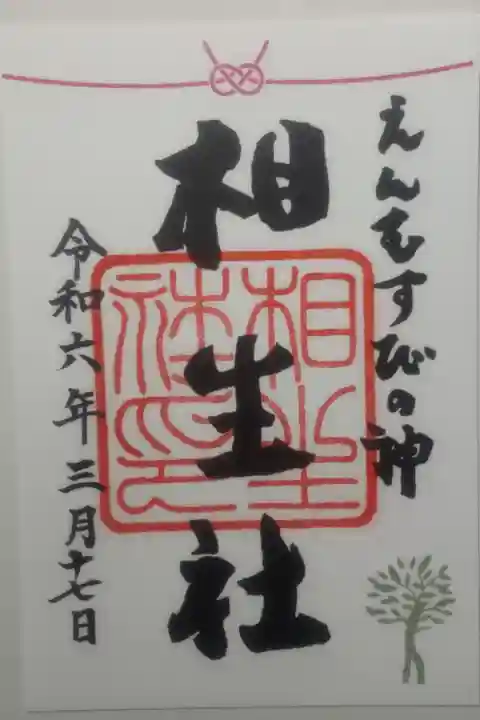 えんむすびの神
相生社
相生社印
令和六年三月十七日